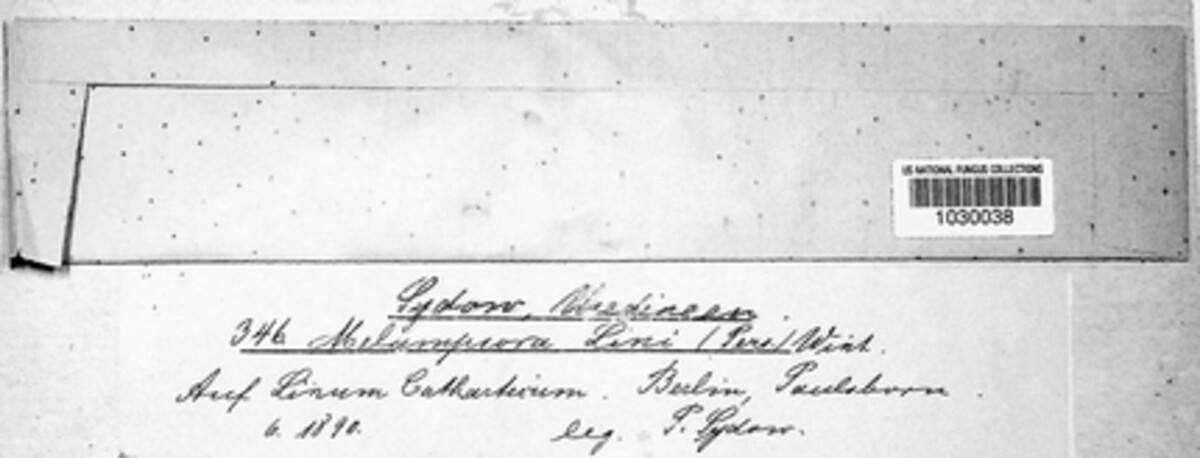 US NATIONAL FUNGUS COLLECTIONS
1030038
Sydow, Uredineen.
346 Melampsora Lini (Pers) Wint.
Auf Linum Catharticum. Berlin, Paulsborn.
6. 1890. leg. P. Sydow.